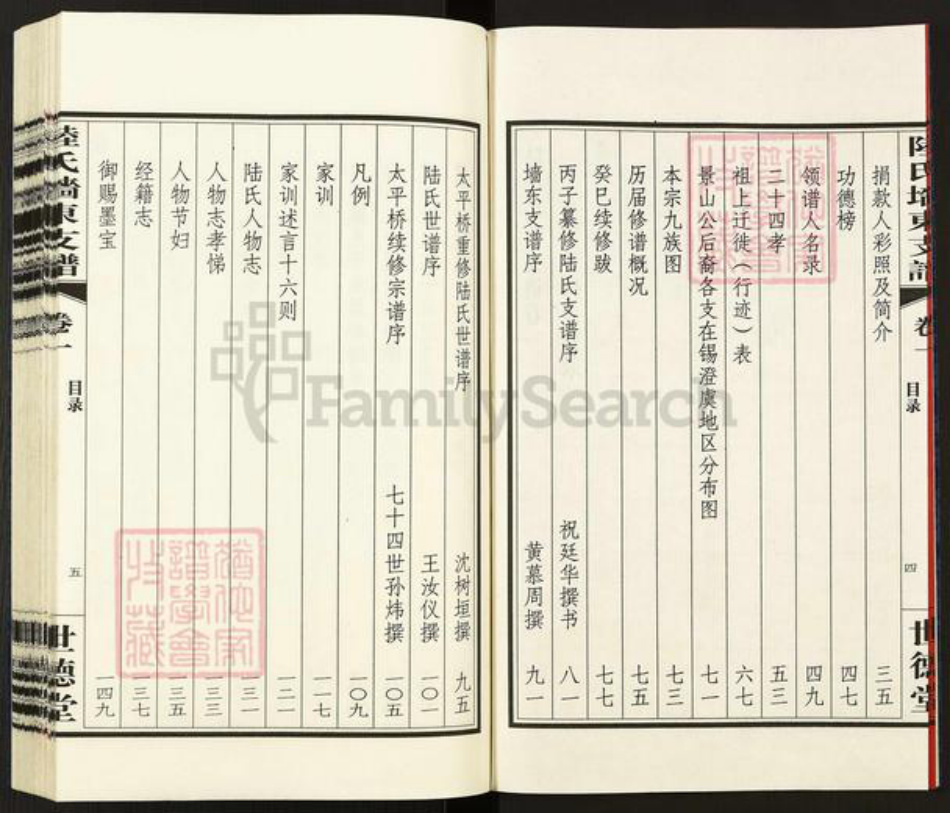 陆氏墙东支谱
卷一
目录
四
世德堂
捐款人彩照及简介 三五
功德榜 四七
领谱人名录 四九
二十四孝 五三
祖上迁徙（行迹）表 六七
景山公后裔各支在锡澄虞地区分布图 七一
本宗九族图 七三
历届修谱概况 七五
癸巳续修跋 七七
丙子纂修陆氏支谱序 祝廷华撰书 八一
墙东支谱序 黄慕周撰 九一
太平桥重修陆氏世谱序 沈树垣撰 九五
陆氏世谱序 王汝仪撰 一〇一
太平桥续修宗谱序 七十四世孙炜撰 一〇五
凡例 一〇九
家训 一一七
家训述言十六则 一二一
陆氏人物志 一三一
人物志孝悌 一三三
人物节妇 一三五
经籍志 一三七
御赐墨宝 一四九
陸氏墙東支譜
卷一
目录
五
世德堂
FamilySearch